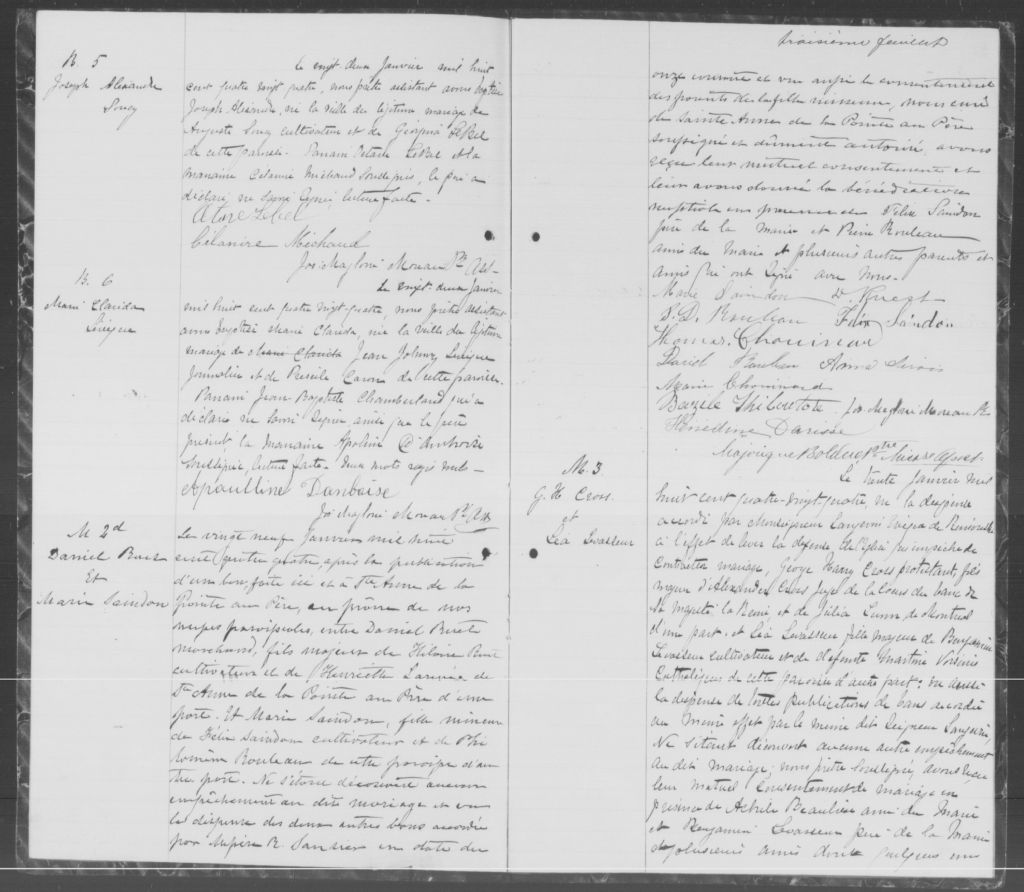 B. 5
Joseph Alexandre
Soucy
Le vingt deux Janvier mil huit
cent quatre vingt quatre, nous prêtre assistant avons baptisé
Joseph Alexandre, né la veille du légitime mariage de
Auguste Soucy cultivateur et de Georgina LeBel
de cette paroisse. Parrain Octave LeBel et la
marraine Célanire Michaud soussignés, le père a
déclaré ne savoir signer, lecture faite.
Octave Lebel
Célanire Michaud
Jos: Magloire Moreau Ptre Asst
B. 6
Marie Clarida
Lévêque
Le vingt-deux Janvier
mil huit cent quatre vingt-quatre, nous prêtre assistant
avons baptisé Marie Clarida, née la veille du légitime
mariage de Marie Clarida Jean Johnny Lévêque
Journalier et de Caron de cette paroisse.
Parrain Jean Baptiste Chamberland qui a
déclaré ne savoir signer ainsi que le père
présent, la marraine Apoline D'Amboise
soussignée, lecture faite. Deux mots rayés nuls
Apaulline Danboise
Jos Magloire Moreau Ptre Ass
M 2d
Daniel Ruest
Et
Marie Saindon
Le vingt neuf Janvier mil huit
cent quatre quatre après la publication
d'un ban faite ici et à Ste Anne de la
Pointe au Père, au prône de nos
messes paroissiales, entre Daniel Ruest
marchand, fils majeur de Hilaire Ruest
cultivateur et de Henriette de
Ste Anne de la Pointe au Père d'une
part. Et Marie Saindon, fille mineure
de Félix Saindon cultivateur et de Phi
lomène Rouleau de cette paroisse d'au
tre part. Ne s'étant découvert aucun
empêchement au dit mariage et vu
la dispense des deux autres bans accordée
par Messire R. en date du
troisième feuillet
onze courant et vu aussi le consentement
des parents de la fille mineure, nous curé
de Sainte Anne de la Pointe au Père
soussigné et dûment autorisé, avons
reçu leur mutuel consentement et
leur avons donné la bénédiction
nuptiale en présence de Félix Saindon
père de la mariée et Pierre Rouleau
ami du marié et plusieurs autres parents et
amis qui ont signé avec nous.
Marie Saindon D. Ruest
P. D. Rouleau Félix Sándon
Thomas Chouinar
David Anna Sirois
Marie Chouinard
Bazile Thiboutote Jos. Magloire Moreau Ptre
Majorique Bolduc Ptre Miss. apost.
M. 3
G. H Cross
et
Léa Levasseur
Le trente Janvier mil
huit cent quatre-vingt-quatre, vu la dispense
accordée par Monseigneur Langevin Evêque de Rimouski
à l'effet de lever la défense de l'Eglise qui empêche de
contracter mariage, George Harry Cross protestant, fils
majeur d'Alexander Cross juge de la Cour du banc de
Sa Majesté la Reine et de Julia Lunn de Montréal
d'une part, et Léa Levasseur fille majeure de Benjamin
Levasseur cultivateur et de défunte Martine Voisine
Catholiques de cette paroisse d'autre part: vu aussi
la dispense de toutes publications de bans accordée
au même effet par le même dit Seigneur Langevin,
Ne s'étant découvert aucune autre empêchement
au dit mariage, nous prêtre soussigné, avons reçu
leur mutuel consentement de mariage en
présence de Achille Beaulieu ami du Marié
et Benjamin Levasseur père de la Mariée
et plusieurs amis dont quelques uns